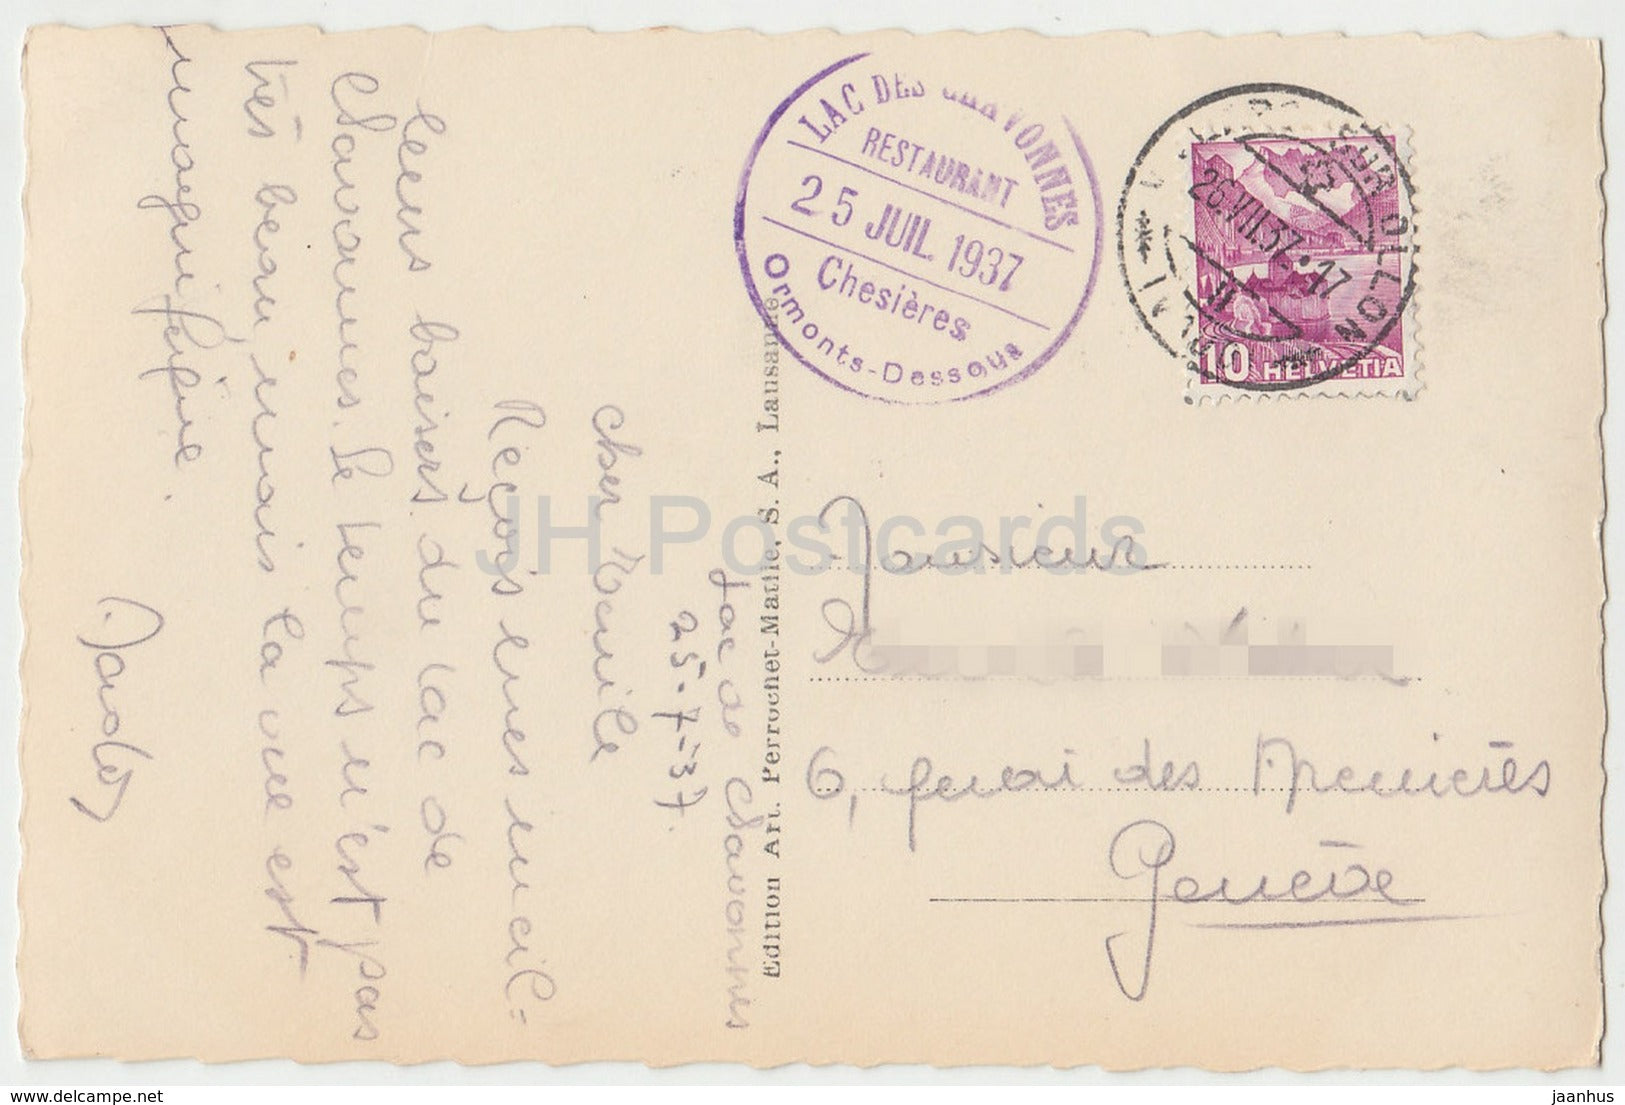 Lac de Chavonnes
25-7-37.
Cher Emile
Reçois mes meil=
leurs baisers du lac de
Chavonnes. Le temps n'est pas
très beau, mais la vue est
magnifique.
Edition Art. Perrochet-Matile, S. A., Lausanne
LAC DES CHAVONNES
RESTAURANT
25 JUIL. 1937
Chesières
Ormonts-Dessous
26.VII.37.·17
10 HELVETIA
Monsieur
6, quai des Arénières
Genève
JH Postcards
delcampe.net
jaanhus